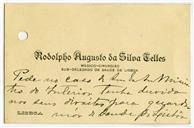 Rodolpho Augusto da Silva Telles
MEDICO-CIRURGIÃO
SUB-DELEGADO DE SAUDE DE LISBOA
Pede no caso de
tro do Interior tenha duvida
nos seus direitos para guarda
mor de saude
LISBOA